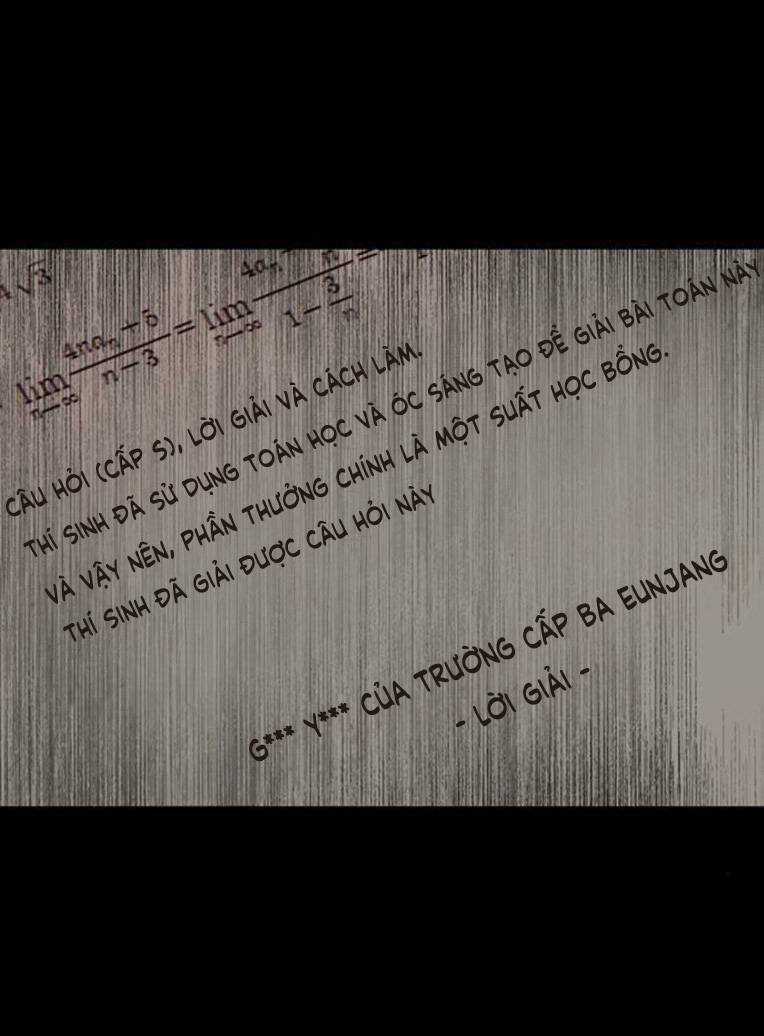 4√3
lim n→∞ (4na_n − 5)/(n − 3) = lim n→∞ (4a_n − /n)/(1 − 3/n) =
CÂU HỎI (CẤP S), LỜI GIẢI VÀ CÁCH LÀM.
THÍ SINH ĐÃ SỬ DỤNG TOÁN HỌC VÀ ÓC SÁNG TẠO ĐỂ GIẢI BÀI TOÁN NÀY
VÀ VẬY NÊN, PHẦN THƯỞNG CHÍNH LÀ MỘT SUẤT HỌC BỔNG.
THÍ SINH ĐÃ GIẢI ĐƯỢC CÂU HỎI NÀY
G*** Y*** CỦA TRƯỜNG CẤP BA EUNJANG
- LỜI GIẢI -